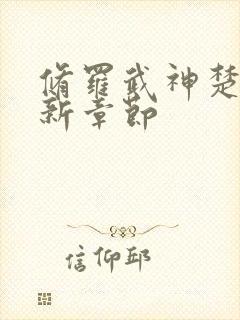 脩羅武神楚
新章節
信仰邱